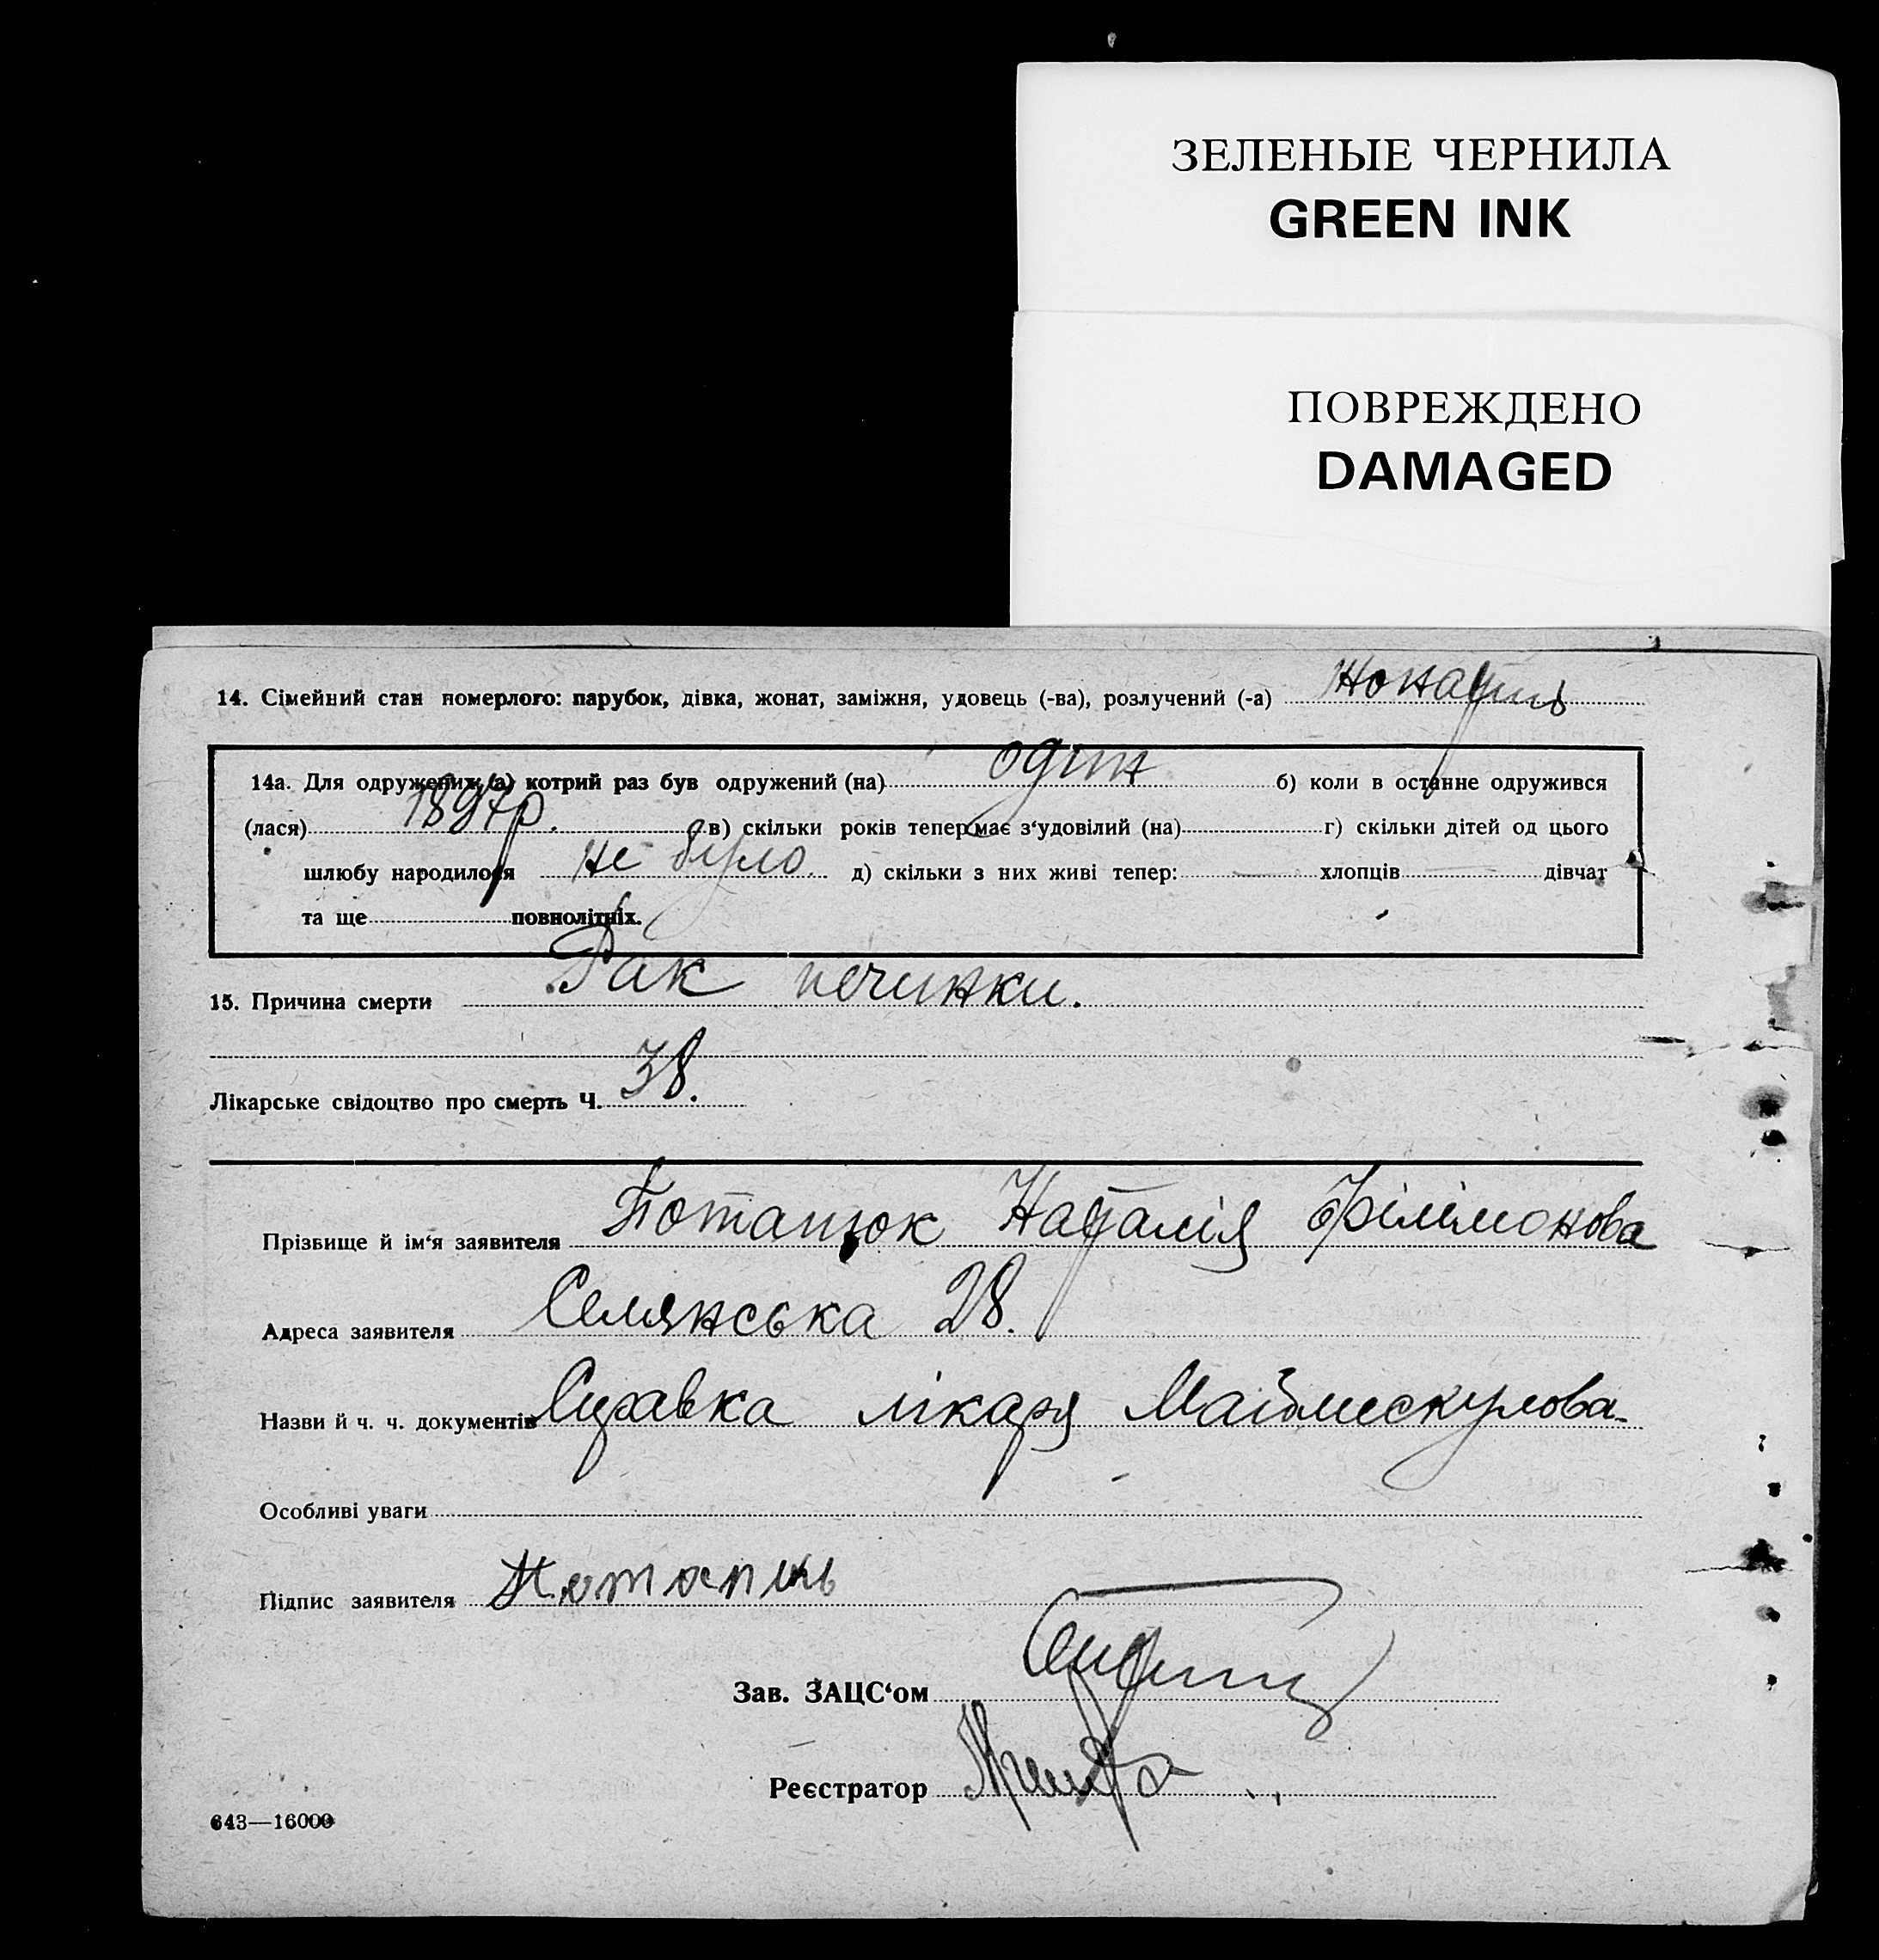 ЗЕЛЕНЫЕ ЧЕРНИЛА
GREEN INK
ПОВРЕЖДЕНО
DAMAGED
14. Сімейний стан померлого: парубок, дівка, жонат, заміжня, удовець (-ва), розлучений (-а)
14а. Для одружених, (а) котрий раз був одружений (на) один б) коли в останне одружився
(лася) 1897р. в) скільки років тепер має з‘удовілий (на) г) скільки дітей од цього
шлюбу народилося не було д) скільки з них живі тепер: — хлопців — дівчат
та ще повнолітніх.
15. Причина смерти Рак печинки.
Лікарське свідоцтво про смерть Ч. 38.
Прізвище й ім‘я заявителя Наталія Філімонова
Адреса заявителя Селянська 28.
Назви й ч. ч. документів Справка лікаря
Особливі уваги
Підпис заявителя
Зав. ЗАЦС‘ом
Реєстратор
643—16000